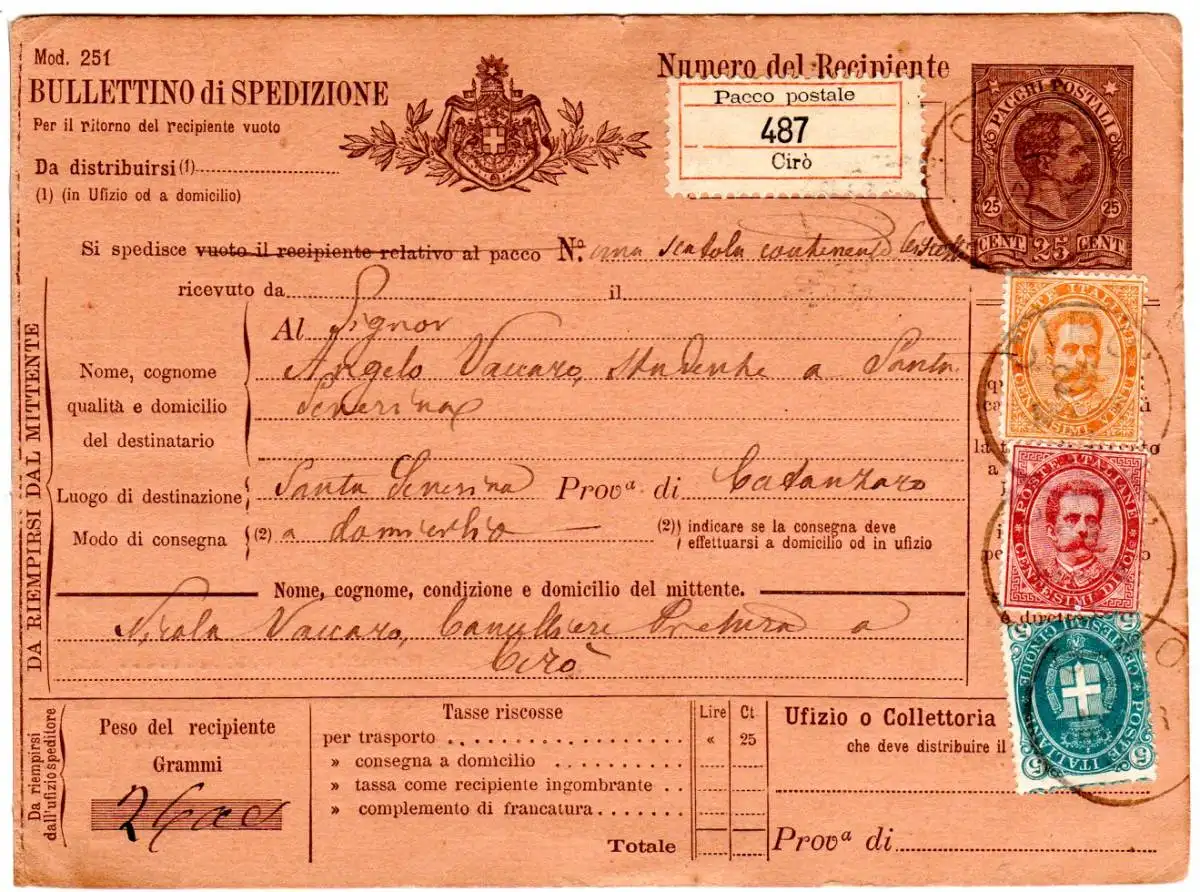 Mod. 251
BULLETTINO di SPEDIZIONE
Per il ritorno del recipiente vuoto
Da distribuirsi (1)
(1) (in Ufizio od a domicilio)
Numero del Recipiente
Pacco postale
487
Cirò
PACCHI POSTALI
25 25
CENT. 25 CENT.
Si spedisce vuoto il recipiente relativo al pacco N.º una scatola contenente
ricevuto da il
DA RIEMPIRSI DAL MITTENTE
Al Signor
Nome, cognome
qualità e domicilio
del destinatario
Angelo Vaccaro, studente a Santa
Severina
Luogo di destinazione Santa Severina Provª di Catanzaro
Modo di consegna (2) a domicilio (2) indicare se la consegna deve
effettuarsi a domicilio od in ufizio
Nome, cognome, condizione e domicilio del mittente.
Nicola Vaccaro, Cancelliere Pretura a
Cirò
POSTE ITALIANE
CENTESIMI VENTI
POSTE ITALIANE
CENTESIMI DIECI
POSTE ITALIANE
CENTESIMI CINQUE
5 5 5 5
Da riempirsi
dall'ufizio speditore
Peso del recipiente
Grammi
Tasse riscosse
Lire Ct
per trasporto « 25
» consegna a domicilio
» tassa come recipiente ingombrante
» complemento di francatura
Totale
Ufizio o Collettoria
che deve distribuire il
Provª di